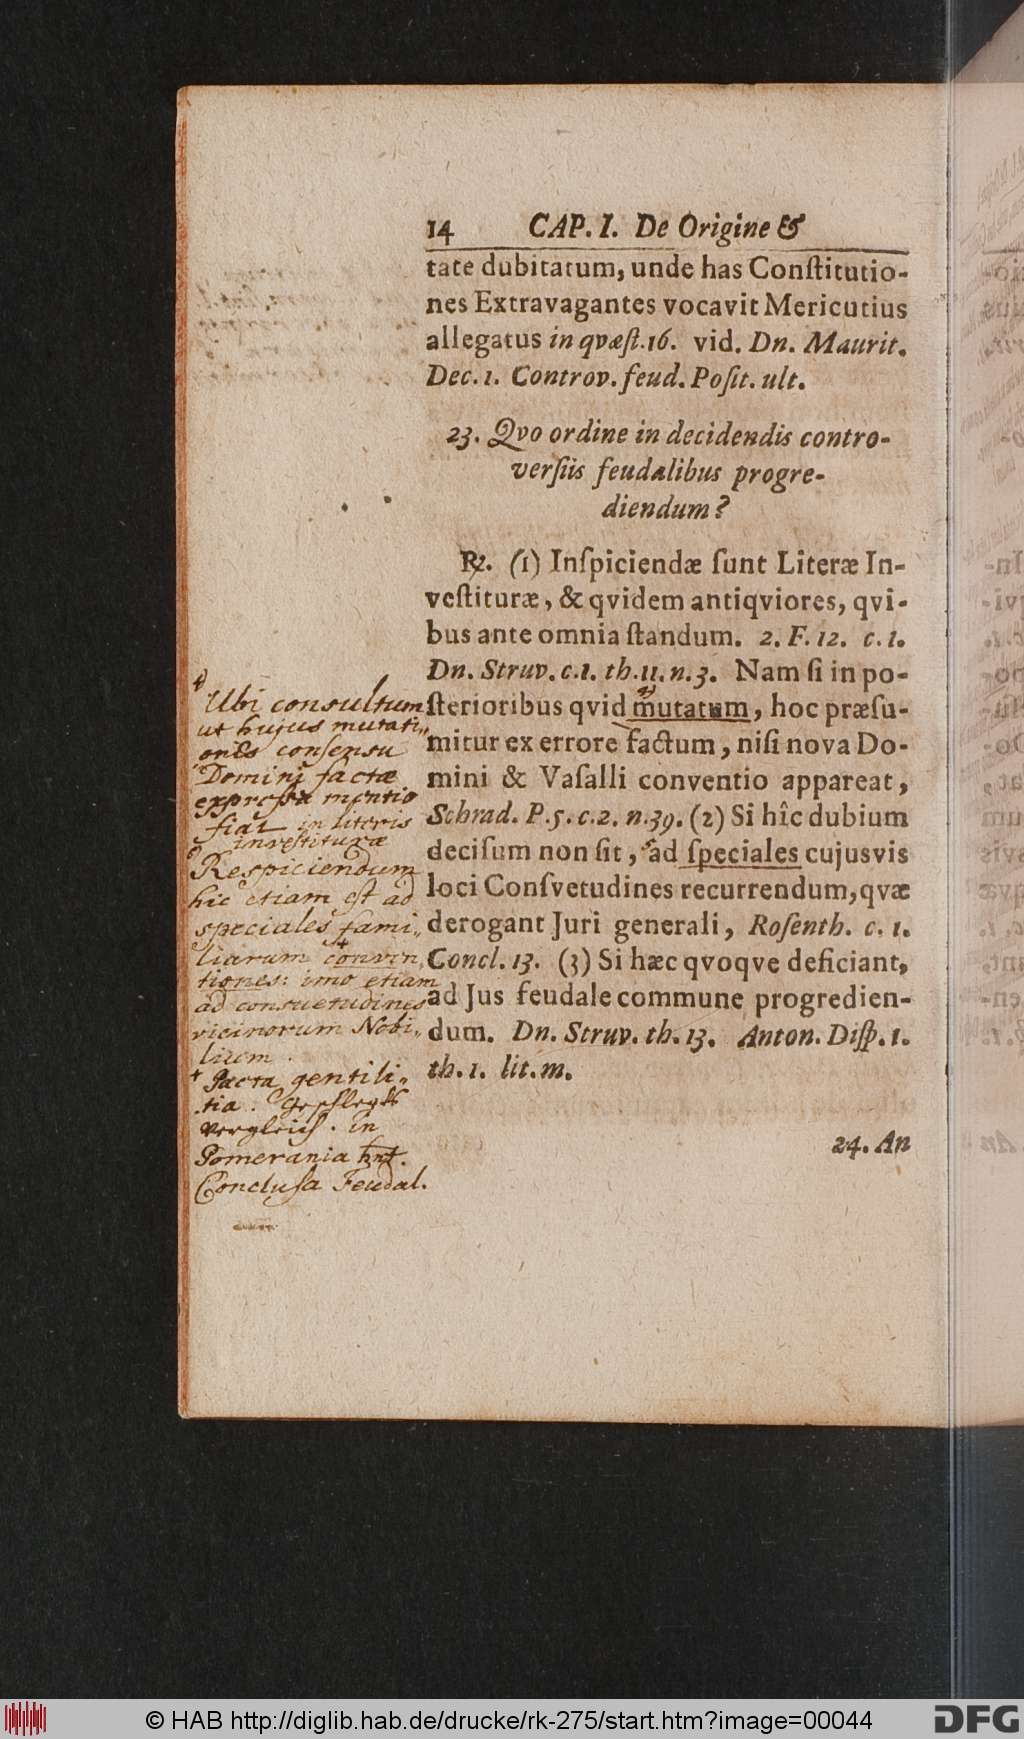 14 CAP. I. De Origine &
tate dubitatum, unde has Conſtitutio-
nes Extravagantes vocavit Mericutius
allegatus in qvæſt. 16. vid. Dn. Maurit.
Dec. 1. Controv. feud. Poſit. ult.
23. Qvo ordine in decidendis contro-
verſiis feudalibus progre-
diendum?
℞. (1) Inſpiciendæ ſunt Literæ In-
veſtituræ, & qvidem antiqviores, qvi-
bus ante omnia ſtandum. 2. F. 12. c. 1.
Dn. Struv. c. 1. th. 11. n. 3. Nam ſi in po-
ſterioribus qvid mutatum, hoc præſu-
mitur ex errore factum, niſi nova Do-
mini & Vaſalli conventio appareat,
Schrad. P. 5. c. 2. n. 39. (2) Si hîc dubium
deciſum non ſit, ad ſpeciales cujusvis
loci Conſvetudines recurrendum, qvæ
derogant Juri generali, Roſenth. c. 1.
Concl. 13. (3) Si hæc qvoqve deficiant,
ad Jus feudale commune progredien-
dum. Dn. Struv. th. 13. Anton. Diſp. 1.
th. 1. lit. m.
24. An
Ubi consultum
ut hujus mutati„
onis consensu
Dominj factæ
expressa mentio
fiat in literis
investituræ
Respiciendum
hic etiam est ad
speciales fami„
liarum conven„
tiones: imo etiam
ad consuetudines
vicinorum Nobi„
lium.
+ Pacta gentili„
tia.
vergleich. in
Pomerania
Conclusa Feudal.
© HAB http://diglib.hab.de/drucke/rk-275/start.htm?image=00044
DFG